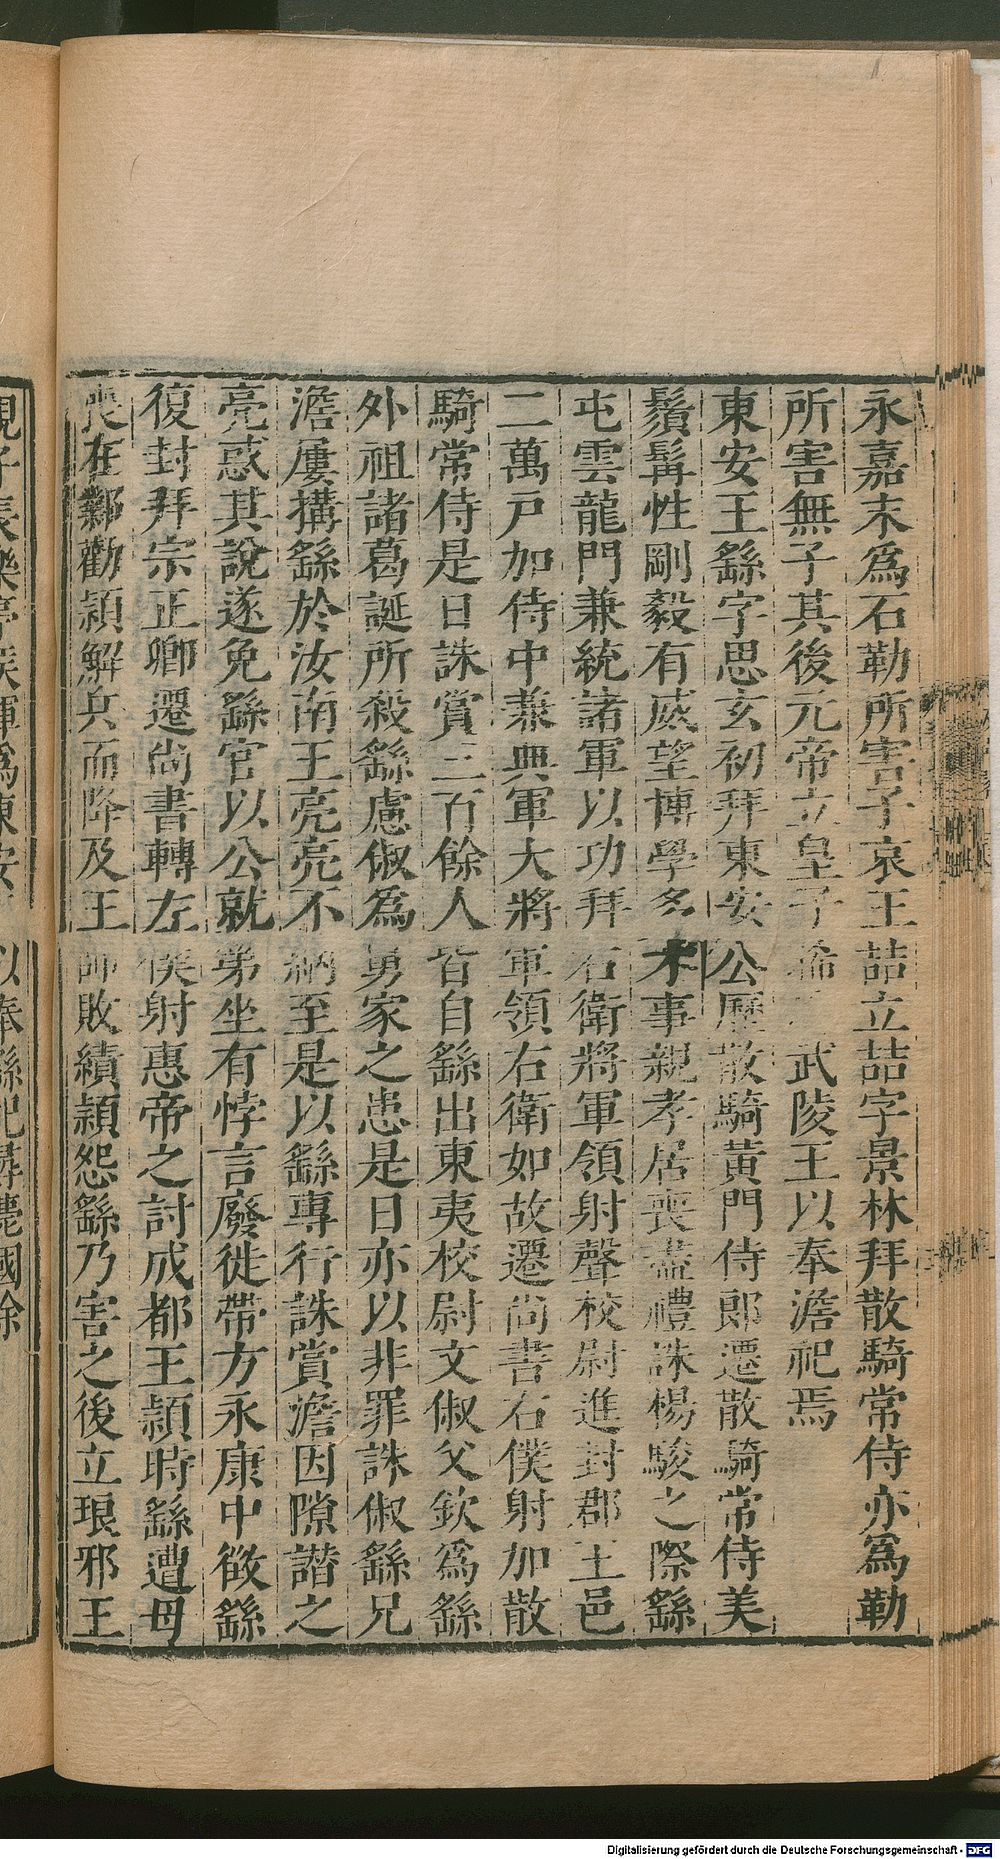 永嘉末爲石勒所害子哀王喆立喆字景林拜散騎常侍亦爲勒
所害無子其後元帝立皇子晞武陵王以奉澹祀焉
東安王繇字思玄初拜東安公歷散騎黃門侍郎遷散騎常侍美
鬚髯性剛毅有威望博學多才事親孝居喪盡禮誅楊駿之際繇
屯雲龍門兼統諸軍以功拜右衛將軍領射聲校尉進封郡王邑
二萬戸加侍中兼典軍大將軍領右衛如故遷尚書右僕射加散
騎常侍是日誅賞三百餘人皆自繇出東夷校尉文俶父欽爲繇
外祖諸葛誕所殺繇慮俶爲舅家之患是日亦以非罪誅俶繇兄
澹屢搆繇於汝南王亮亮不納至是以繇專行誅賞澹因隙譖之
亮惑其說遂免繇官以公就第坐有悖言廢徙帶方永康中徵繇
復封拜宗正卿遷尚書轉左僕射惠帝之討成都王穎時繇遭母
喪在鄴勸穎解兵而降及王師敗績穎怨繇乃害之後立琅邪王
覲子長樂亭矦渾爲東安以奉繇祀尋薨國除
Digitalisierung gefördert durch die Deutsche Forschungsgemeinschaft - DFG